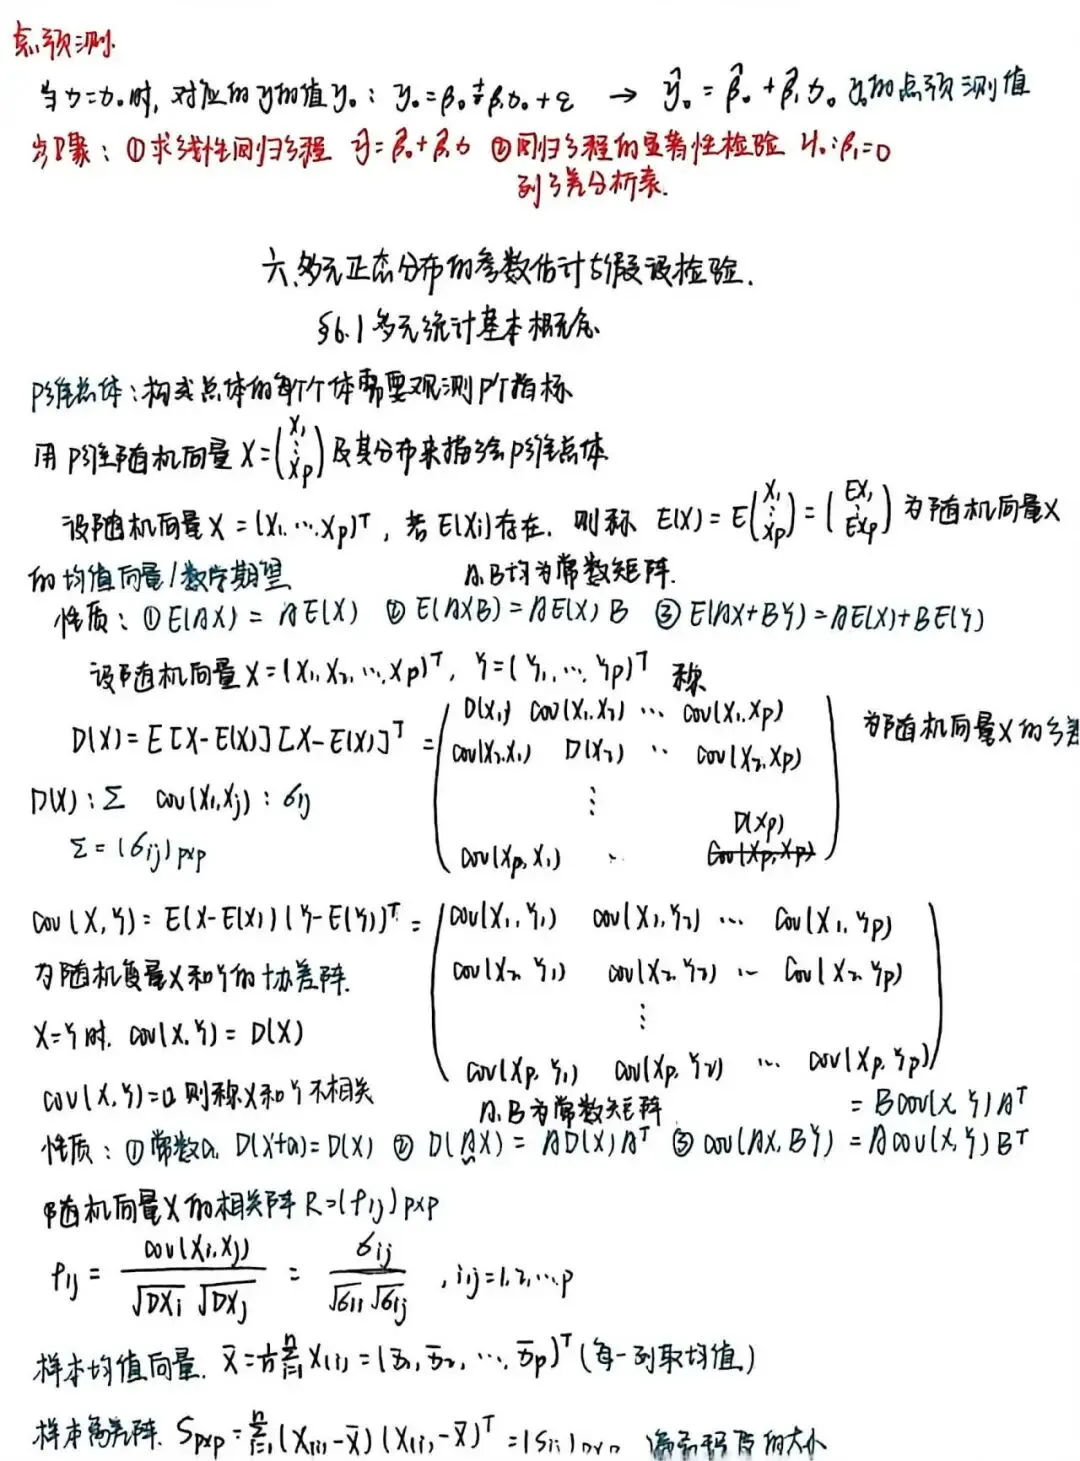 点预测.
当x=x₀时,对应的y的值y₀: y₀=β₀+β₁x₀+ε → ŷ₀=β̂₀+β̂₁x₀ y₀的点预测值
步骤: ①求线性回归方程 ŷ=β̂₀+β̂₁x ②回归方程的显著性检验 H₀:β₁=0
列方差分析表.
六.多元正态分布的参数估计与假设检验.
§6.1多元统计基本概念
P维总体:构成总体的每个个体需要观测P个指标
用P维随机向量X=(X₁ ⋮ Xp)及其分布来描绘P维总体
设随机向量X=(X₁,…,Xp)ᵀ,若E(Xi)存在.则称 E(X)=E(X₁ ⋮ Xp)=(EX₁ ⋮ EXp)为随机向量X
的均值向量/数学期望 A.B均为常数矩阵.
性质: ①E(AX)=AE(X) ②E(AXB)=AE(X)B ③E(AX+BY)=AE(X)+BE(Y)
设随机向量X=(X₁,X₂,…,Xp)ᵀ, Y=(Y₁,…,Yp)ᵀ 称
D(X)=E[X-E(X)][X-E(X)]ᵀ=
D(X₁) cov(X₁,X₂) … cov(X₁,Xp)
cov(X₂,X₁) D(X₂) … cov(X₂,Xp)
⋮
D(Xp)
cov(Xp,X₁) … cov(Xp,Xp)
为随机向量X的方差
D(X):Σ cov(Xi,Xj):σij
Σ=(σij)p×p
cov(X,Y)=E(X-E(X))(Y-E(Y))ᵀ=
cov(X₁,Y₁) cov(X₁,Y₂) … cov(X₁,Yp)
cov(X₂,Y₁) cov(X₂,Y₂) … cov(X₂,Yp)
⋮
cov(Xp,Y₁) cov(Xp,Y₂) … cov(Xp,Yp)
为随机变量X和Y的协差阵.
X=Y时. cov(X,Y)=D(X)
cov(X,Y)=0则称X和Y不相关
A.B为常数矩阵 =Bcov(X,Y)Aᵀ
性质: ①常数a, D(X+a)=D(X) ②D(AX)=AD(X)Aᵀ ③cov(AX,BY)=Acov(X,Y)Bᵀ
随机向量X的相关阵R=(ρij)p×p
ρij=cov(Xi,Xj)/√DXi√DXj=σij/√σii√σjj, i,j=1,2,…p
样本均值向量. X̄=1/n Σⁿᵢ₌₁X(i)=(x̄₁,x̄₂,…,x̄p)ᵀ(每一列取均值)
样本离差阵. Sp×p=Σⁿᵢ₌₁(X(i)-X̄)(X(i)-X̄)ᵀ=(Sij)p×p 的大小